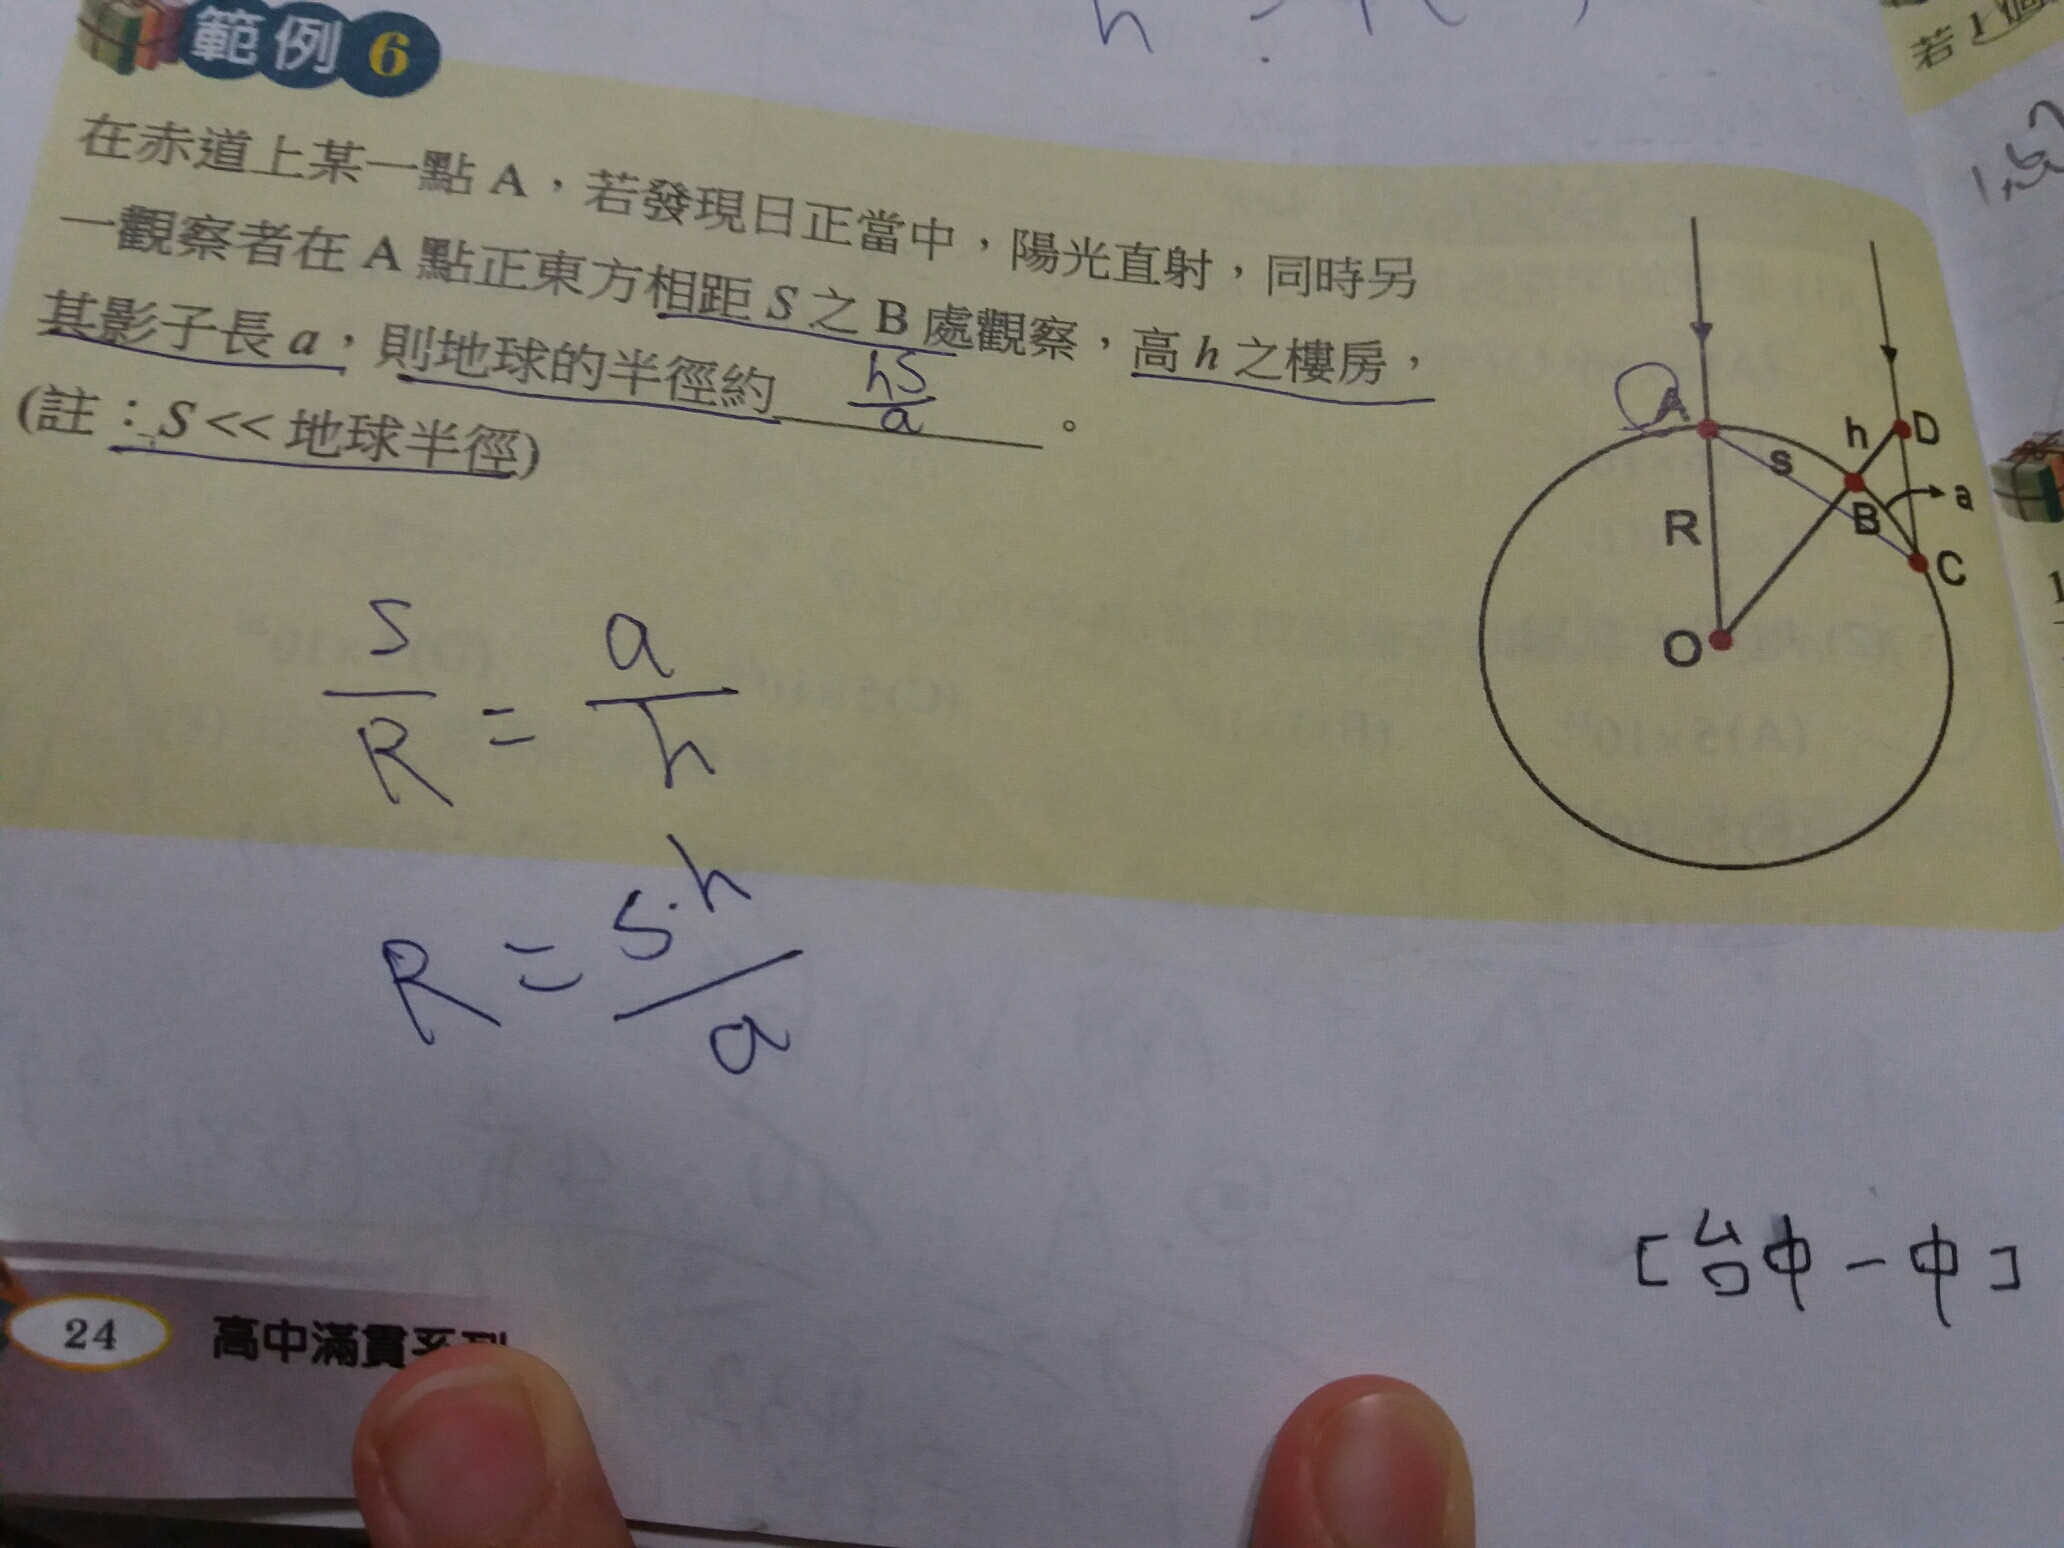 範例 6
在赤道上某一點 A，若發現日正當中，陽光直射，同時另
一觀察者在 A 點正東方相距 S 之 B 處觀察，高 h 之樓房，
其影子長 a，則地球的半徑約 hS/a 。
(註：S << 地球半徑)
A
S
h
D
B
a
C
R
O
S/R = a/h
R = S·h/a
[台中一中]
24
高中滿貫系列
若 1 個